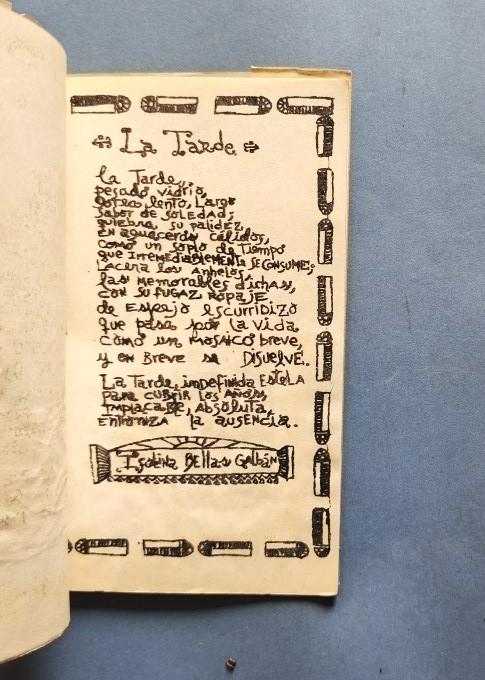 La Tarde
La Tarde,
pesado vidrio,
goteo lento, Largo
sabor de soledad;
quiebra su palidez
en aguaceros cálidos,
como un soplo de Tiempo
que irremediablemente se consume;
lacera los Anhelos,
las memorables dichas,
con su fugaz ropaje
de Espejo escurridizo
que pasa por la vida
como un mosaico breve,
y en Breve se Disuelve.
La Tarde, indefinida Estela
para cubrir los Años,
Implacable, Absoluta,
Entroniza la ausencia.
Bellas Galbán